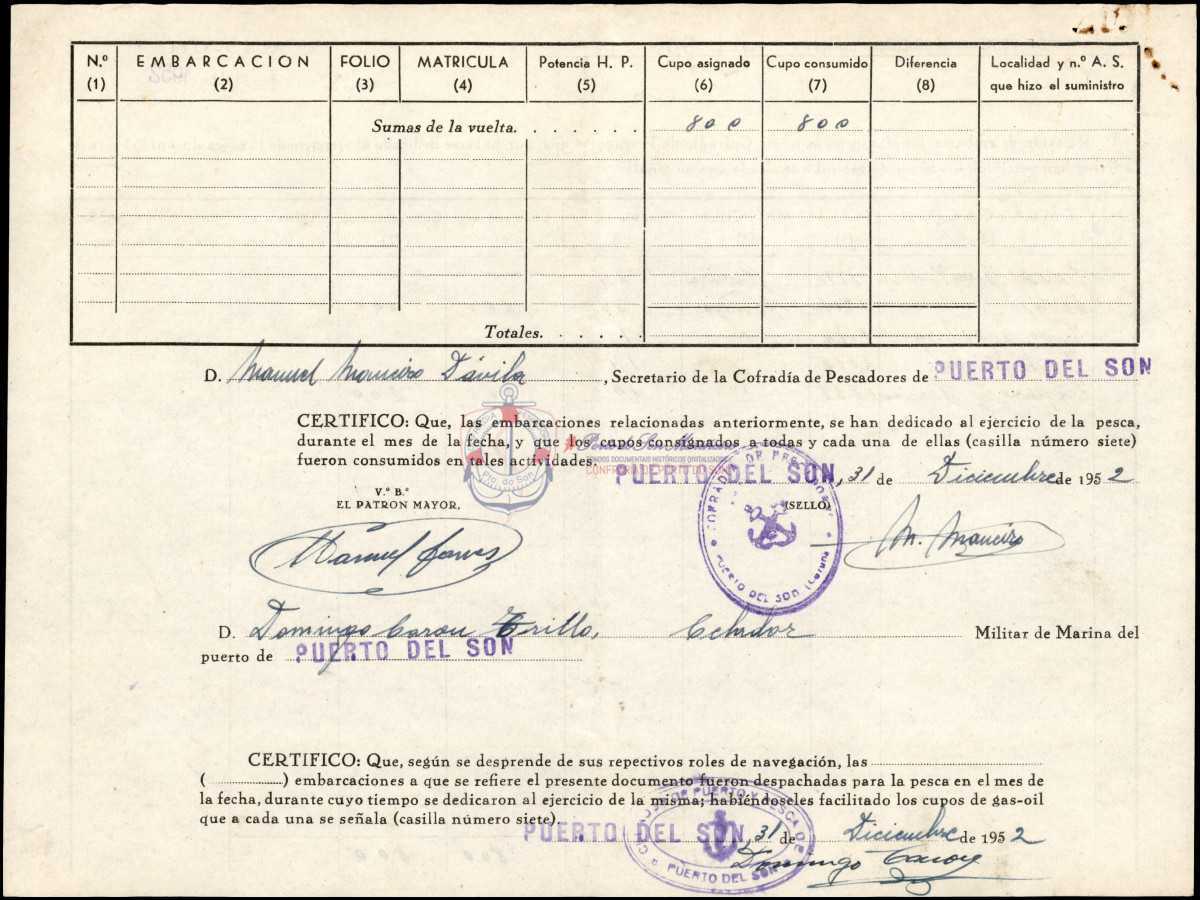 N.º EMBARCACION FOLIO MATRICULA Potencia H. P. Cupo asignado Cupo consumido Diferencia Localidad y n.º A. S.
(1) (2) (3) (4) (5) (6) (7) (8) que hizo el suministro
Sumas de la vuelta. . . . . . . 800 800
Totales. . . . . .
D. Manuel Maneiro Dávila, Secretario de la Cofradía de Pescadores de PUERTO DEL SON
CERTIFICO: Que, las embarcaciones relacionadas anteriormente, se han dedicado al ejercicio de la pesca,
durante el mes de la fecha, y que los cupos consignados a todas y cada una de ellas (casilla número siete)
fueron consumidos en tales actividades.
FONDOS DOCUMENTAIS HISTÓRICOS DIGITALIZADOS
CONFRARÍA DE PORTO DO SON
Pto. do Son
PUERTO DEL SON, 31 de Diciembre de 1952
V.º B.º
EL PATRON MAYOR,
(SELLO)
COFRADIA DE PESCADORES
PUERTO DEL SON (Coruña)
Manuel
M. Maneiro
D. Domingo Carou Trillo, Celador Militar de Marina del
puerto de PUERTO DEL SON
CERTIFICO: Que, según se desprende de sus repectivos roles de navegación, las
( ) embarcaciones a que se refiere el presente documento fueron despachadas para la pesca en el mes de
la fecha, durante cuyo tiempo se dedicaron al ejercicio de la misma; habiéndoseles facilitado los cupos de gas-oil
que a cada una se señala (casilla número siete).
PUERTO DEL SON, 31 de Diciembre de 1952
DE PUERTO Y PESCA DE
PUERTO DEL SON
Domingo Carou